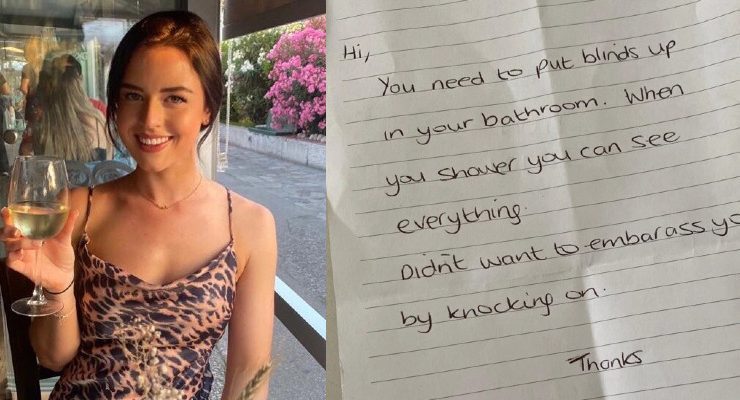 Hi,
You need to put blinds up
in your bathroom. When
you shower you can see
everything.
Didn't want to embarass yo
by knocking on.
Thanks